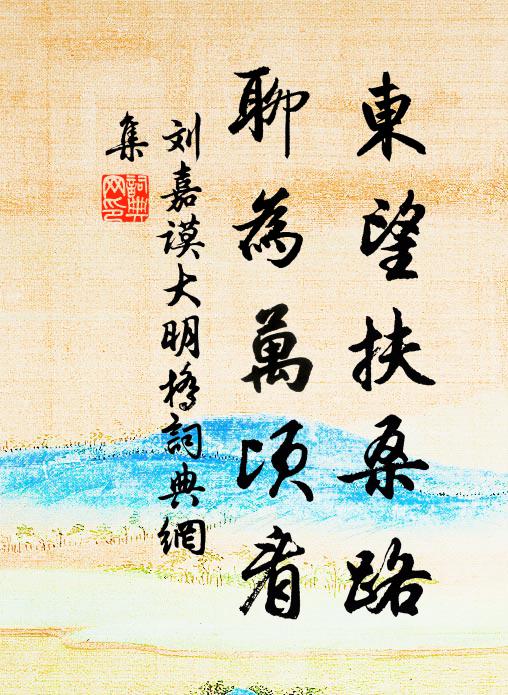 東望扶桑路
聊為萬頃看
刘嘉謨大明橋詞典網
集
詞典
网印